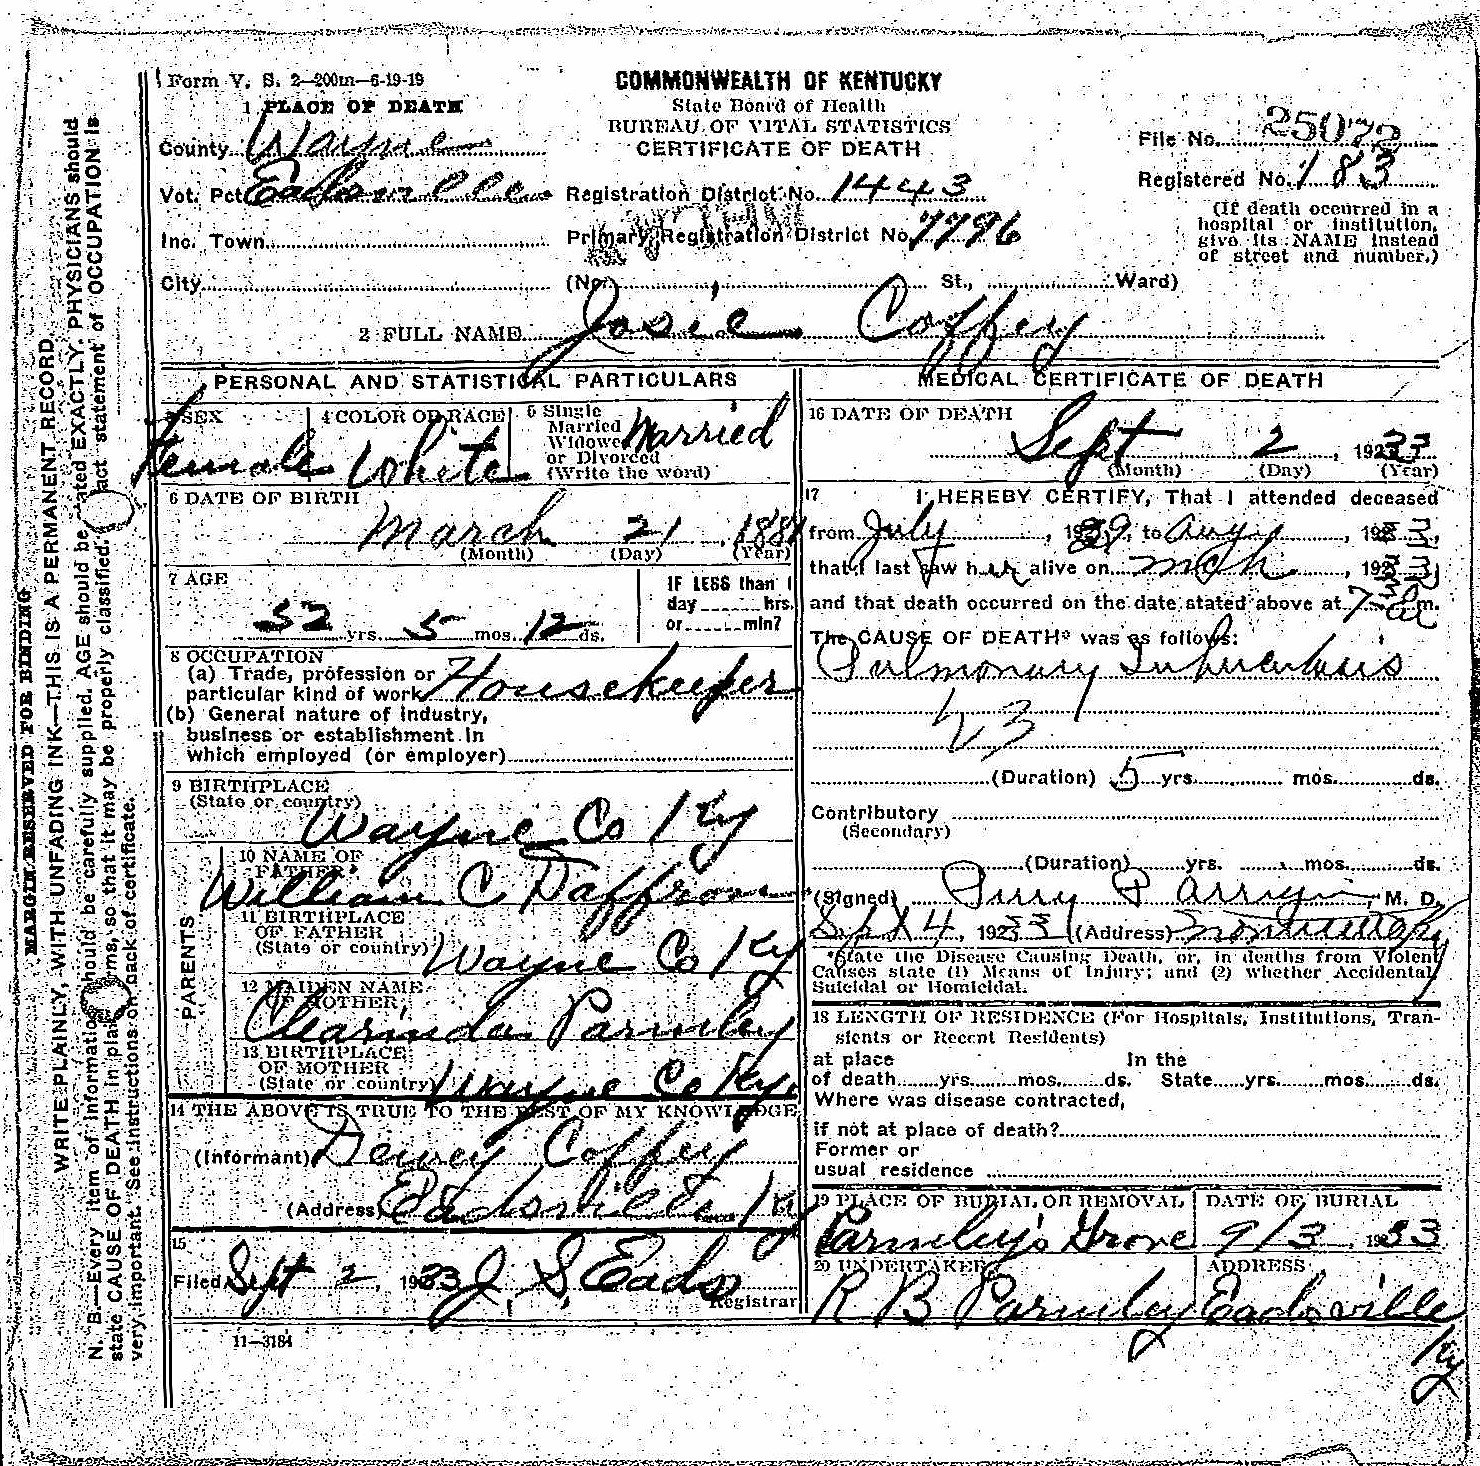 Form V. S. 2—200m—6-19-19
COMMONWEALTH OF KENTUCKY
State Board of Health
BUREAU OF VITAL STATISTICS
CERTIFICATE OF DEATH
File No. 25072
Registered No. 183
(If death occurred in a
hospital or institution,
give its NAME instead
of street and number.)
1 PLACE OF DEATH
County Wayne
Vot. Pct. Eadsville Registration District No. 1443
Inc. Town Primary Registration District No. 7796
City (No. St., Ward)
2 FULL NAME Josie Coffey
PERSONAL AND STATISTICAL PARTICULARS
3 SEX
Female
4 COLOR OR RACE
White
5 Single
Married
Widowed
or Divorced
(Write the word)
Married
6 DATE OF BIRTH
March 21, 1881
(Month) (Day) (Year)
7 AGE
52 yrs. 5 mos. 12 ds.
IF LESS than 1
day hrs.
or min?
8 OCCUPATION
(a) Trade, profession or
particular kind of work Housekeeper
(b) General nature of industry,
business or establishment in
which employed (or employer)
9 BIRTHPLACE
(State or country)
Wayne Co Ky
PARENTS
10 NAME OF
FATHER
William C Daffron
11 BIRTHPLACE
OF FATHER
(State or country) Wayne Co Ky
12 MAIDEN NAME
OF MOTHER
Clearinda Parmley
13 BIRTHPLACE
OF MOTHER
(State or country) Wayne Co Ky
14 THE ABOVE IS TRUE TO THE BEST OF MY KNOWLEDGE
(Informant) Dewey Coffey
(Address) Eadsville Ky
15
Filed Sept 2, 1933 J. S. Eads
Registrar
11—3184
MEDICAL CERTIFICATE OF DEATH
16 DATE OF DEATH
Sept 2, 1933
(Month) (Day) (Year)
17 I HEREBY CERTIFY, That I attended deceased
from July , 1929, to Aug , 1933,
that I last saw her alive on mch , 1933
and that death occurred on the date stated above at 7 a m.
The CAUSE OF DEATH* was as follows:
Pulmonary Tuberculosis
23
(Duration) 5 yrs. mos. ds.
Contributory
(Secondary)
(Duration) yrs. mos. ds.
(Signed) M. D.
Sept 4, 1933 (Address) Monticello Ky
*State the Disease Causing Death, or, in deaths from Violent
Causes state (1) Means of Injury; and (2) whether Accidental,
Suicidal or Homicidal.
18 LENGTH OF RESIDENCE (For Hospitals, Institutions, Tran-
sients or Recent Residents)
at place In the
of death yrs. mos. ds. State yrs. mos. ds.
Where was disease contracted,
if not at place of death?
Former or
usual residence
19 PLACE OF BURIAL OR REMOVAL
Parmley's Grove
DATE OF BURIAL
9/3 1933
20 UNDERTAKER
R B Parmley
ADDRESS
Eadsville
Ky
MARGIN RESERVED FOR BINDING
WRITE PLAINLY, WITH UNFADING INK—THIS IS A PERMANENT RECORD
N. B.—Every item of information should be carefully supplied. AGE should be stated EXACTLY. PHYSICIANS should
state CAUSE OF DEATH in plain terms, so that it may be properly classified. Exact statement of OCCUPATION is
very important. See instructions on back of certificate.